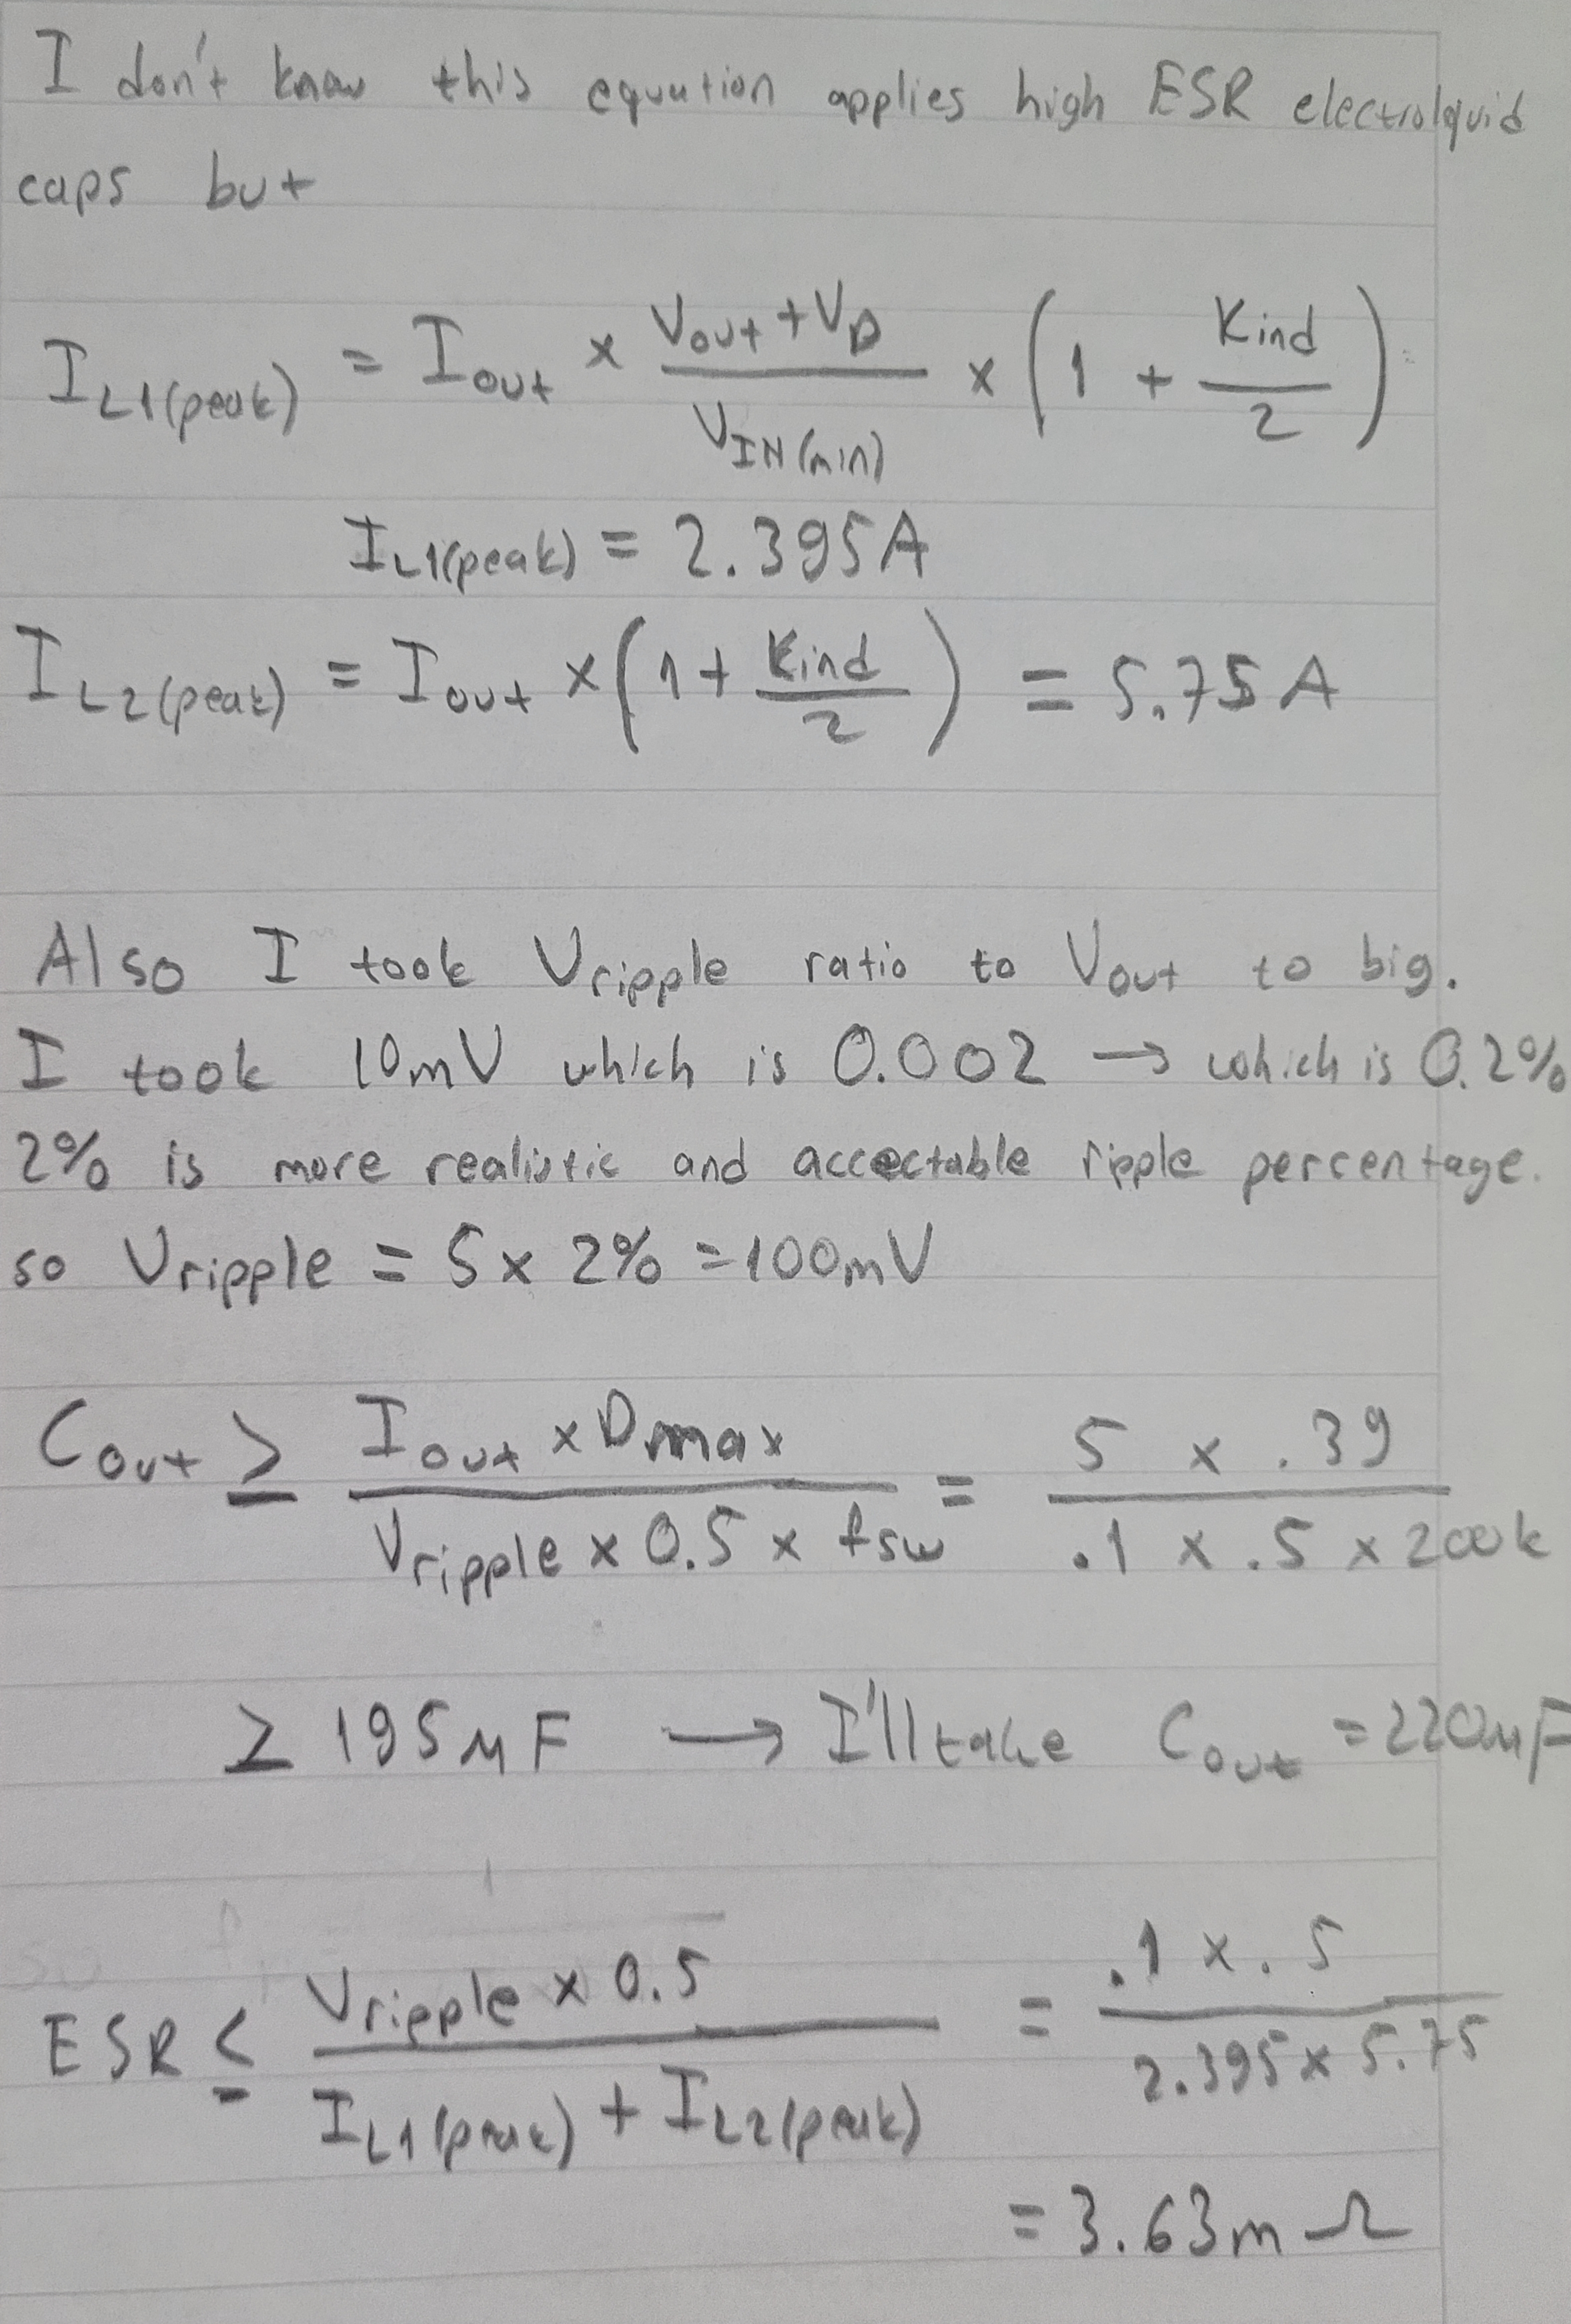 I don't know this equation applies high ESR electrolquid
caps but
I_L1(peak) = I_out × (V_out + V_D) / V_IN(min) × (1 + Kind / 2)
I_L1(peak) = 2.395A
I_L2(peak) = I_out × (1 + Kind / 2) = 5.75 A
Also I took Vripple ratio to Vout to big.
I took 10mV which is 0.002 → which is 0.2%
2% is more realistic and accectable ripple percentage.
so Vripple = 5 × 2% = 100mV
C_out ≥ (I_out × Dmax) / (Vripple × 0.5 × fsw) = (5 × .39) / (.1 × .5 × 200k)
≥ 195μF → I'll take C_out = 220μF
ESR ≤ (Vripple × 0.5) / (I_L1(peak) + I_L2(peak)) = (.1 × .5) / (2.395 × 5.75)
= 3.63m Ω